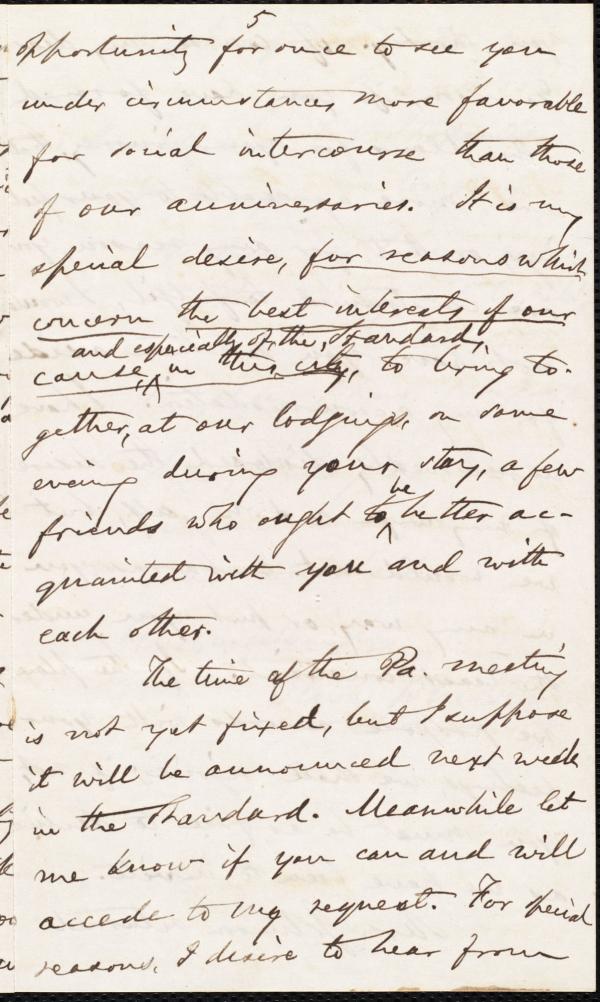 5
opportunity for once to see you
under circumstances more favorable
for social intercourse than those
of our anniversaries. It is my
special desire, for reasons which
concern the best interests of our
and especially of the Standard,
cause, ^ in this city, to bring to-
gether, at our lodgings, on some
evening during your stay, a few
be
friends who ought to ^ better ac-
quainted with you and with
each other.
The time of the Pa. meeting
is not yet fixed, but I suppose
it will be announced next week
in the Standard. Meanwhile let
me know if you can and will
accede to my request. For special
reasons, I desire to hear from